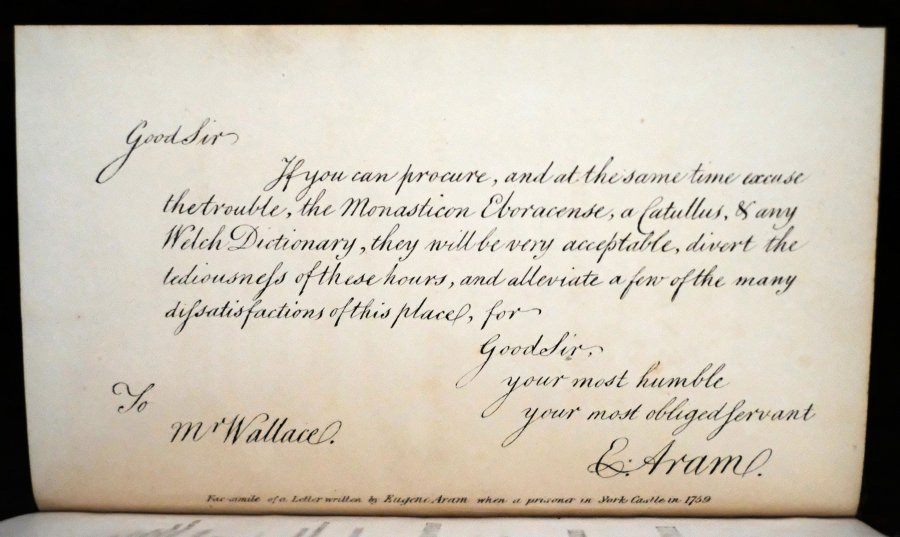 Good Sir
If you can procure, and at the same time excuse
the trouble, the Monasticon Eboracense, a Catullus, & any
Welch Dictionary, they will be very acceptable, divert the
tediousneſs of these hours, and alleviate a few of the many
diſsatisfactions of this place, for
Good Sir,
your most humble
your most obliged ſervant
To
Mr Wallace.
E. Aram.
Fac-simile of a Letter written by Eugene Aram when a prisoner in York Castle in 1759